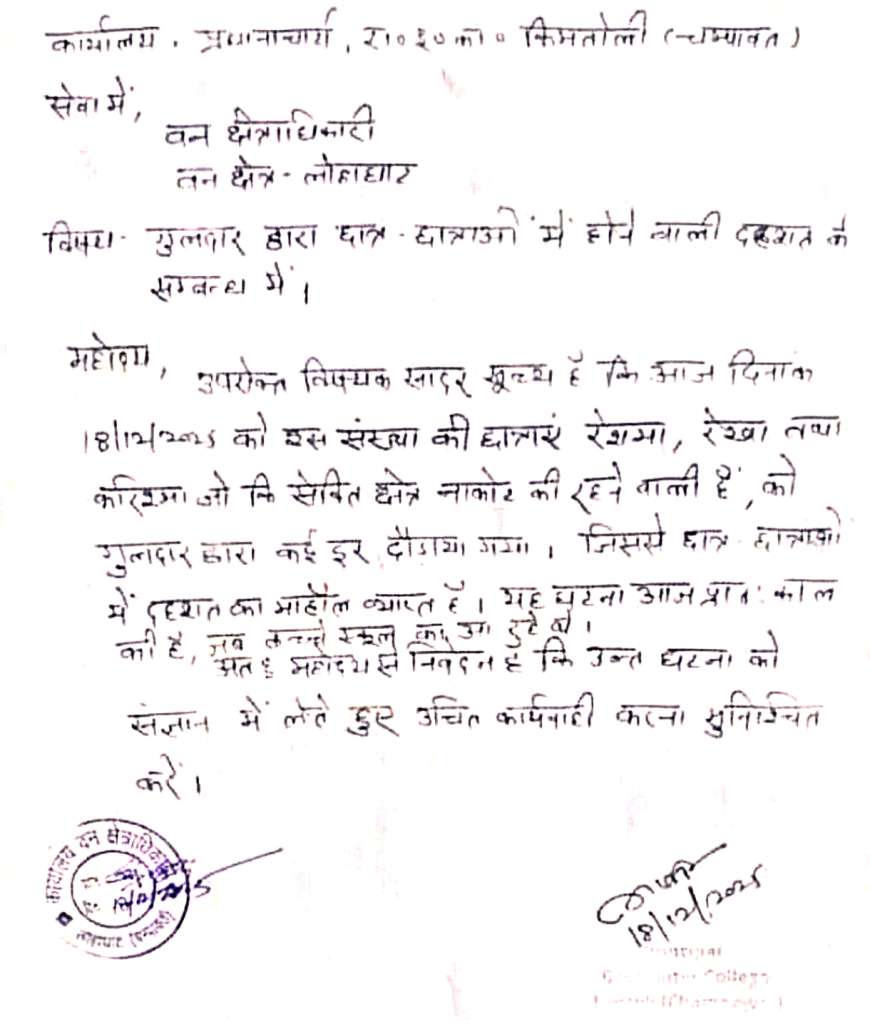 कार्यालय, प्रधानाचार्य, रा०इ०का० किमतोली (चम्पावत)
सेवा में,
वन क्षेत्राधिकारी
वन क्षेत्र - लोहाघाट
विषय - गुलदार द्वारा छात्र - छात्राओं में होने वाली दहशत के
सम्बन्ध में ।
महोदय,
उपरोक्त विषयक सादर सूच्य है कि आज दिनांक
18/12/2025 को इस संस्था की छात्राएं रेशमा, रेखा तथा
करिश्मा जो कि सेवित क्षेत्र नाकोट की रहने वाली हैं, को
गुलदार द्वारा कई दूर दौडाया गया । जिससे छात्र - छात्राओं
में दहशत का माहौल व्याप्त है । यह घटना आज प्रातः काल
की है, जब बच्चे स्कूल आ रहे थे ।
अतः महोदय से निवेदन है कि उक्त घटना को
संज्ञान में लेते हुए उचित कार्यवाही करना सुनिश्चित
करें ।
कार्यालय वन क्षेत्राधिकारी
लोहाघाट (चम्पावत)
18/12/2025
Principal
Inter College